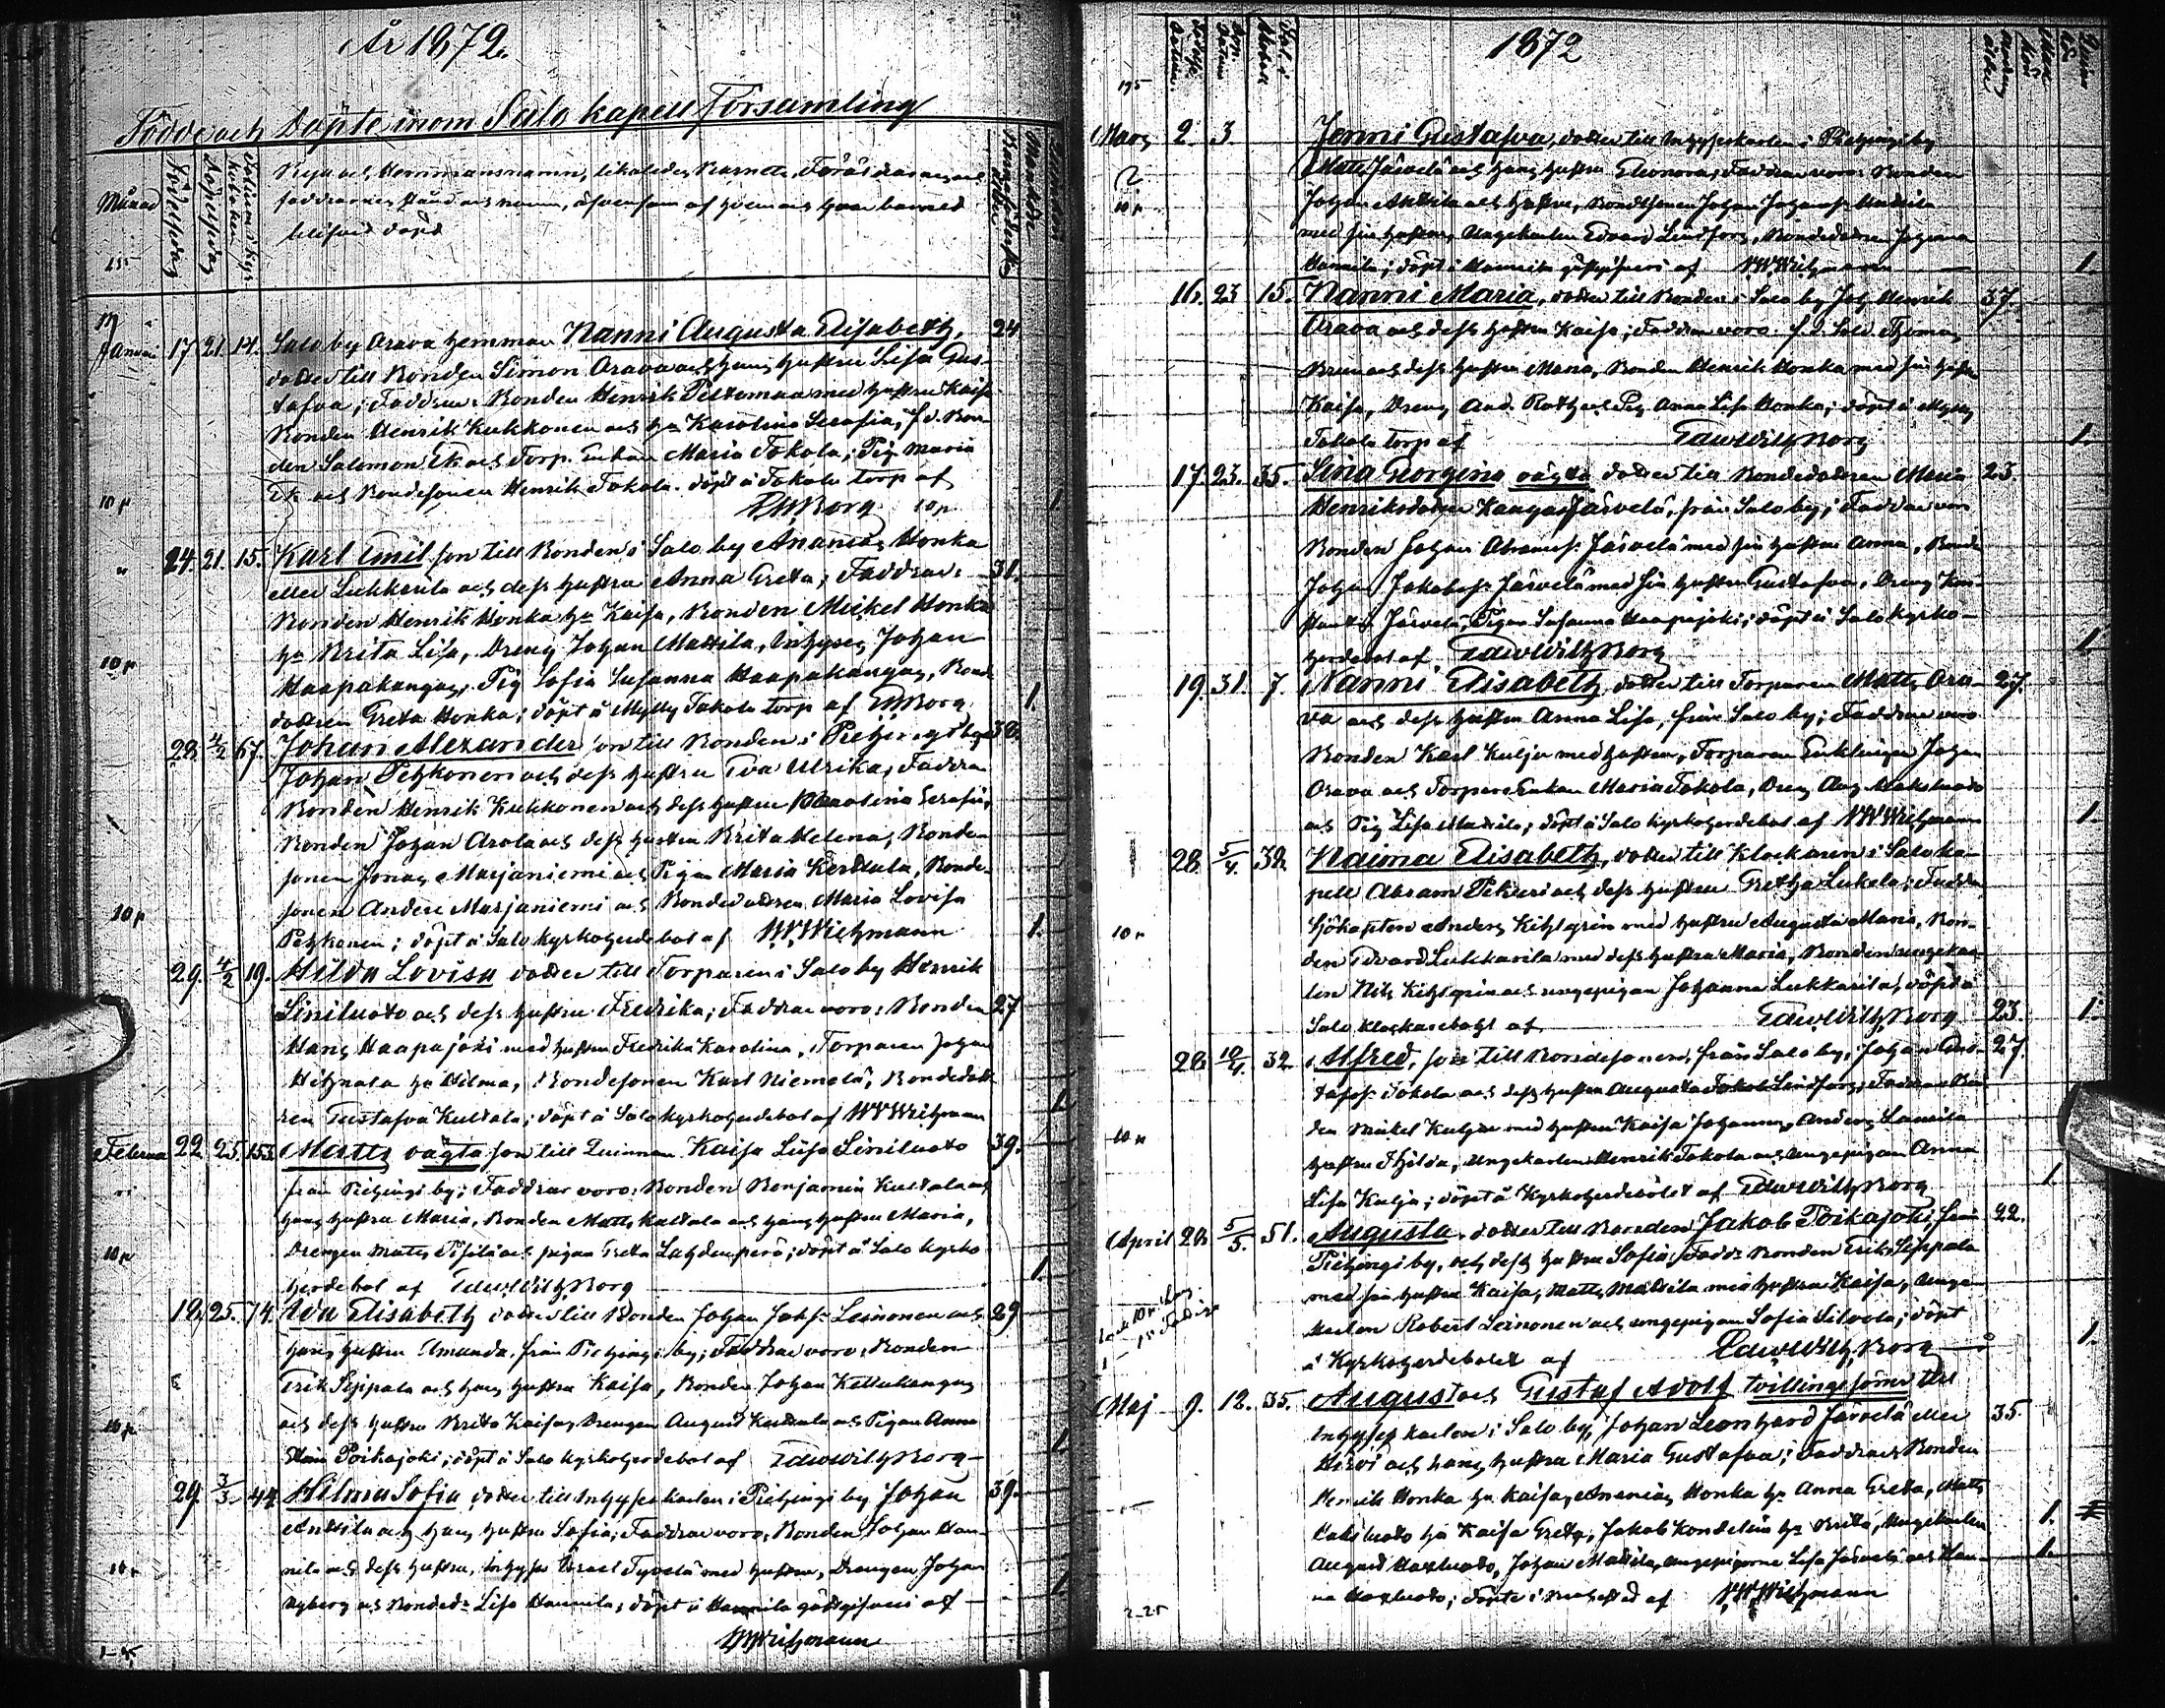 År 1872.
Födde och Döpte inom Salo kapell Församling
Månad
Födelsedag
Döpelsedag
Januari 17. 21. 14. Salo by Arava hemman Nanni Augusta Elisabeth, 24
dotter till Bonden Simon Arava och hans hustru Lisa Gus-
tafva; Faddrar: Bonden Henrik Peltomaa med hustru Kaisa
Bonden Henrik Kukkonen och h:u Karolina Serafia, f.d. Bon-
den Salomon Ek och Torp. Enkan Maria Tokola; Pig. Maria
Ek och Bondesonen Henrik Tokola. döpt å Tokola torp af
10 p EWBorg 10 p. 1.
24. 21. 15. Karl Emil, son till Bonden i Salo by Ananias Honka
eller Lukkaila och dess hustru Anna Greta; Faddrar: 31.
Bonden Henrik Honka h:u Kaisa, Bonden Mickel Honka
h:u Brita Lisa, Dreng Johan Mattila, Inhyses Johan
10 p Haapakangas, Pig Sofia Susanna Haapakangas, Bond
dottren Greta Honka; döpt å Mylly Tokola torp af EWBorg 1.
28. 4/2 67. Johan Alexander son till Bonden i Piehingi by 38.
Johan Pehkonen och dess hustru Eva Ulrika; Faddrar
Bonden Henrik Kukkonen och dess hustru Karolina Serafia,
Bonden Johan Arola och dess hustru Brita Helena, Bonde-
sonen Jonas Marjaniemi och Pigan Maria Kerttula, Bonde-
sonen Anders Marjaniemi och Bondedottren Maria Lovisa
10 p Pehkonen; döpt å Salo kyrkoherdebol af WWichmann 1.
29. 4/2 19. Hilda Lovisa dotter till Torparen i Salo by Henrik
Siniluoto och dess hustru Fredrika; Faddrar voro: Bonden 27
Hans Haapajoki med hustru Fredrika Karolina, Torparen Johan
Hihnala h:u Hilma, Bondesonen Karl Niemelä, Bondedott-
ren Gustafva Kultala; döpt å Salo kyrkoherdebol af WWichmann 1.
Februa 22. 25. 153. Matts oägta son till Quinnan Kaisa Lisa Siniluoto 39.
ri från Piehingi by; Faddrar voro: Bonden Benjamin Kultala och
hans hustru Maria, Bonden Matts Kultala och hans hustru Maria,
10 p Drengen Matts Pisilä och pigan Greta Lahdenperä; döpt å Salo kyrko
herdebol af Edw Wilh Borg 1.
18. 25. 74. Ida Elisabeth dotter till Bonden Johan Johss: Leinonen och 29
hans hustru Amanda, från Piehingi by; Faddrar voro: Bonden
Erik Seppala och hans hustru Kaisa, Bonden Johan Kettukangas
10 p och dess hustru Brita Kaisa, Drengen August Kultala och Pigan Anna
Poikajoki; döpt å Salo kyrkoherdebol af Edw Wilh Borg 1.
29. 3/3 44. Hilma Sofia dotter till Inhyseskarlen i Piehingi by Johan 39.
Anttila och hans hustru Sofia; Faddrar voro: Bonden Johan Han-
nila och dess hustru, Inhyses Israel Tyvelä med hustru, Drengen Johan
Nyberg och Bonded: Lisa Hannila; döpt å Hannila gästgifveri af 1
WWichmann
1872
Mars 2. 3. Jenni Gustafva, dotter till Inhyseskarlen i Piehingi by
Matts Järvelä och hans hustru Eleonora; Faddrar voro: Bonden
10 p Johan Anttila och hustru, Bondesonen Johan Johanss: Mattila
med sin hustru, Ungekarlen Edvard Lindfors, Bondedottren Johanna
Hannila; döpt i Hannila gästgifveri af WWichmann 1.
16. 23. 15. Nanni Maria, dotter till Bonden i Salo by Joh Henrik 37.
Arava och dess hustru Kaisa; Faddrar voro: f.d. Sold. Thomas
Brun och dess hustru Maria, Bonden Henrik Honka med sin hustru
Kaisa, Dreng And. Roth och Pig. Anna Lisa Honka; döpt å Mylly
Tokola torp af Edw Wilh Borg 1.
17. 23. 35. Sina Georgina oägta dotter till Bondedottren Maria 23.
Henriksdotter Kangas Järvelä, från Salo by; Faddrar voro
Bonden Johan Abramss: Järvelä med sin hustru Anna, Bonde
Johan Jakobss: Järvelä med sin hustru Gustafva, Dreng Kon-
stantin Järvelä, Pigan Susanna Haapajoki; döpt å Salo kyrko-
herdebol af Edw Wilh Borg 1
19. 31. 7. Nanni Elisabeth dotter till Torparen Matts Ara- 27.
va och dess hustru Anna Lisa, från Salo by; Faddrar voro
Bonden Karl Kulju med hustru, Torparen Enklingen Johan
Arava och Torpare Enkan Maria Tokola, Dreng Aug. Maksluoto
och Pig Lisa Mattila; döpt å Salo kyrkoherdebol af WWichmann 1
28. 5/4. 32. Naima Elisabeth, dotter till Klockaren i Salo ka-
pell Abram Pekuri och dess hustru Gretha Lukela; Faddrar
Sjökapten Anders Kihlgren med hustru Augusta Maria, Bon-
10 p den Edvard Lukkarila med dess hustru Maria, Bonden ungekar-
len Nils Kihlgren och ungepigan Johanna Lukkarila, döpt å
Salo Klockarebohl af Edw Wilh Borg 23. 1.
28. 10/4. 32 Alfred, son till Bondesonen, från Salo by, Johan Gus- 27.
tafss: Tokola och dess hustru Augusta Lindfors; Faddrar Bon-
den Mickel Kulju med hustru Kaisa Johanna, Anders Laurila
10 p hustru Hilda, Ungekarlen Henrik Tokola och Ungepigan Anna
Lisa Kulju; döpt å Kyrkoherdebolet af Edw Wilh Borg 1.
April 28 5/5. 51. Augusta, dotter till Bonden Jakob Poikajoki, från 22.
Piehingi by, och dess hustru Sofia; Fadd: Bonden Erik Seppala
med sin hustru Kaisa, Matts Mattila med hustru Kaisa, Unge-
karlen Robert Leinonen och ungepigan Sofia Silvola; döpt
å Kyrkoherdebolet af Edw Wilh Borg 1.
Maj 9. 12. 35. August och Gustaf Adolf tvillingesöner till
Inhyses karlen i Salo by, Johan Leonhard Järvelä eller 35.
Hirvi och hans hustru Maria Gustafva; Faddrar Bonden
Henrik Honka h:u Kaisa, Ananias Honka h:u Anna Greta, Matts
Maksluoto h:u Kaisa Greta, Jakob Kondelin h:u Brita, Ungekarlen 1.
August Maxluoto, Johan Mattila, ungepigorna Lisa Järvelä och Han- 1.
na Maxluoto; döpte i prestgård af WWichmann